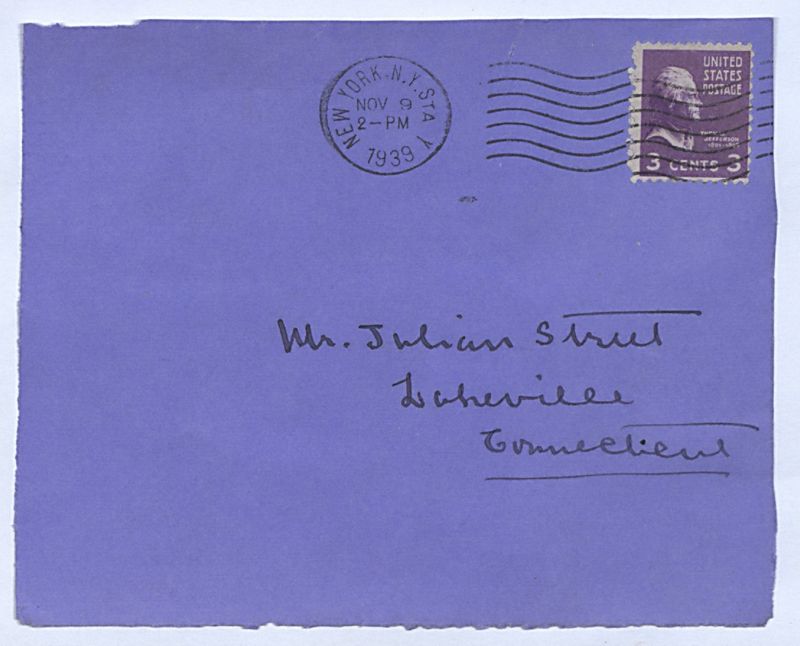 NEW YORK, N.Y. STA Y
NOV 9
2-PM
1939
UNITED
STATES
POSTAGE
THOMAS
JEFFERSON
3 CENTS 3
Mr. Julian Street
Lakeville
Connecticut